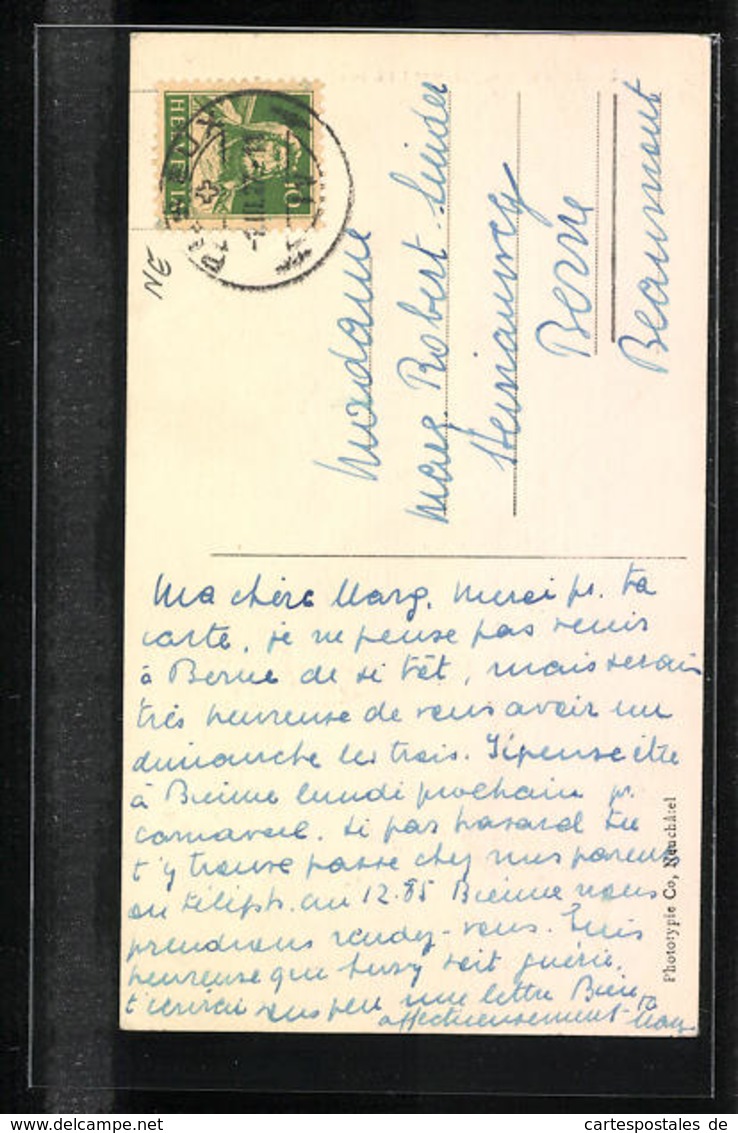 HELVETIA
10
NE
Madame
Marg. Robert-Linder
Berne
Beaumont
Ma chère Marg. Merci pr. ta
carte, je ne pense pas venir
à Berne de si tôt, mais serais
très heureuse de vous avoir un
dimanche les trois. Je pense être
à Bienne lundi prochain pr.
carnaval. Si par hasard tu
t'y trouve passe chez mes parents
ou téléph. au 12.85 Bienne nous
prendrons rendez-vous. Suis
heureuse que Susy soit guérie,
t'écrirai sous peu une lettre. Bien
affectueusement
Phototypie Co, Neuchâtel
cartespostales de